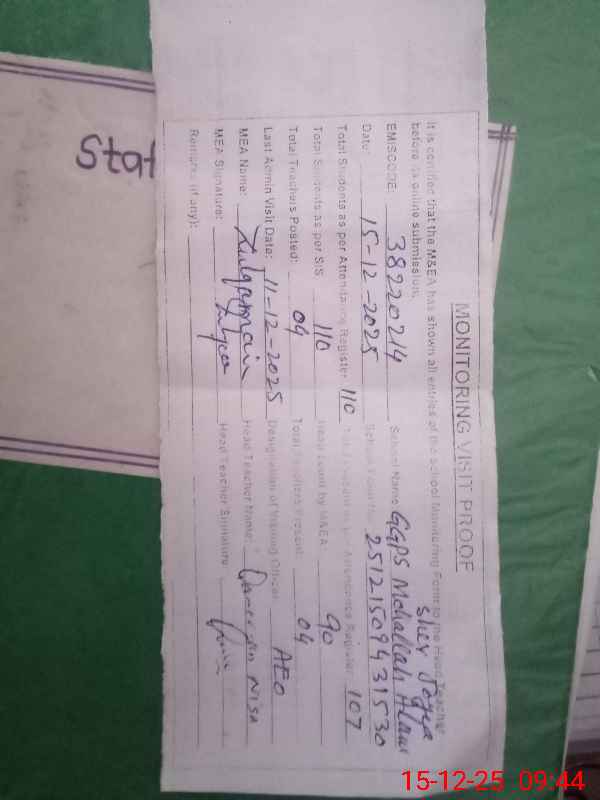 Stat
MONITORING VISIT PROOF
It is certified that the M&EA has shown all entries of the school Monitoring Form to the Head Teacher
before its online submission.
EMISCODE: 38220214 School Name: GGPS Mohallah Alam
Sher
Date: 15-12-2025 25121509431530
Total Students as per Attendance Register 110 Attendance Register 107
Total Students as per SIS: 110 Head count by M&EA: 90
Total Teachers Posted: 04 Total Teachers Present: 04
Last Admin Visit Date: 11-12-2025 Designation of Visiting Officer: AEO
MEA Name: Zulqarnain Head Teacher Name: Nisa
MEA Signature: Head Teacher Signature:
Remarks (if any):
15-12-25 09:44